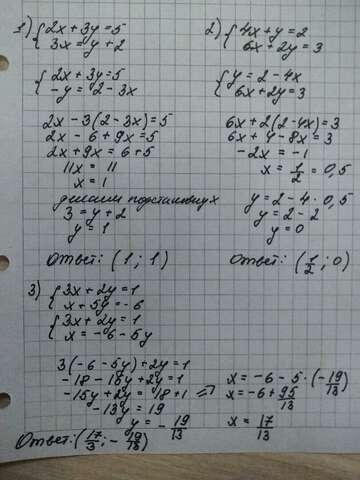 1) { 2x + 3y = 5
3x = y + 2
{ 2x + 3y = 5
-y = 2 - 3x
2x - 3(2 - 3x) = 5
2x - 6 + 9x = 5
2x + 9x = 6 + 5
11x = 11
x = 1
делаем подстановку
3 = y + 2
y = 1
Ответ: (1; 1)
2) { 4x + y = 2
6x + 2y = 3
{ y = 2 - 4x
6x + 2y = 3
6x + 2(2 - 4x) = 3
6x + 4 - 8x = 3
-2x = -1
x = 1/2 = 0,5
y = 2 - 4 · 0,5
y = 2 - 2
y = 0
Ответ: (1/2; 0)
3) { 3x + 2y = 1
x + 5y = -6
{ 3x + 2y = 1
x = -6 - 5y
3(-6 - 5y) + 2y = 1
-18 - 15y + 2y = 1
-15y + 2y = 18 + 1 =>
-13y = 19
y = - 19/13
x = -6 - 5 · (- 19/13)
x = -6 + 95/13
x = 17/13
Ответ: (17/3; - 19/13)